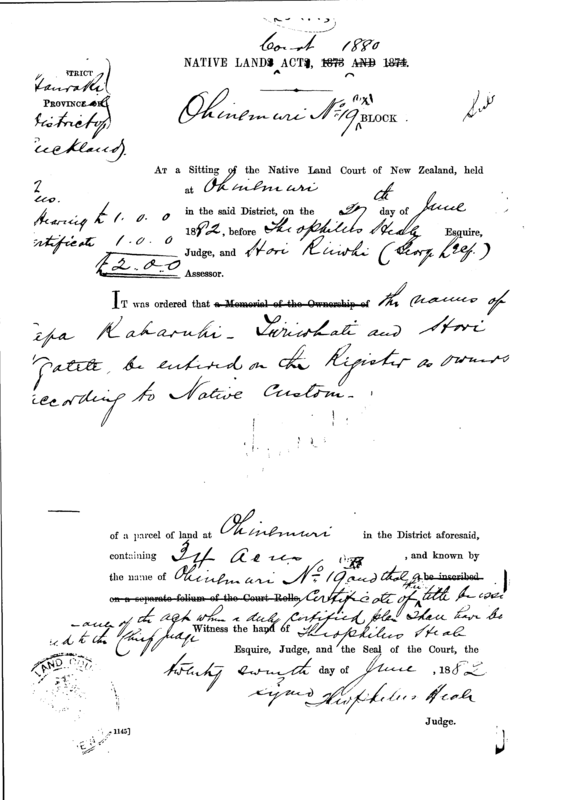 Court 1880
NATIVE LANDS ACTS, 1873 AND 1874.
TRICT
Hauraki
PROVINCE OF
District of
uckland).
Ohinemuri No. 19 BLOCK.
AT a Sitting of the Native Land Court of New Zealand, held
at Ohinemuri
in the said District, on the 27th day of June
Hearing £ 1. 0. 0
1882, before Theophilus Heale Esquire,
ertificate 1. 0. 0
Judge, and Hori Ririwhi (George
£2.0.0
Assessor.
IT was ordered that a Memorial of the Ownership of the names of
epa Kaharuhi - Tiriwhati and Hori
Ngatete, be entered on the Register as owners
according to Native Custom.
of a parcel of land at Ohinemuri in the District aforesaid,
containing 34 acres, and known by
the name of Ohinemuri No. 19 and that a be inscribed
on a separate folium of the Court Rolls, Certificate of title be issued
of the act when a duly certified plan shall have be
ed to the Chief Judge
Witness the hand of Theophilus Heale
Esquire, Judge, and the Seal of the Court, the
twenty seventh day of June, 1882
signed Theophilus Heale
Judge.
LAND COU
1145]